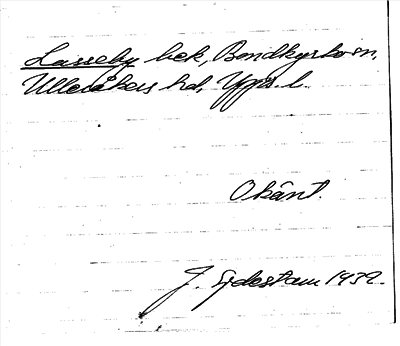 Lasseby bek, Bondkyrko sn,
Ulleråkers hd, Upps. l.
Okänt.
J. Sjdestam 1932.